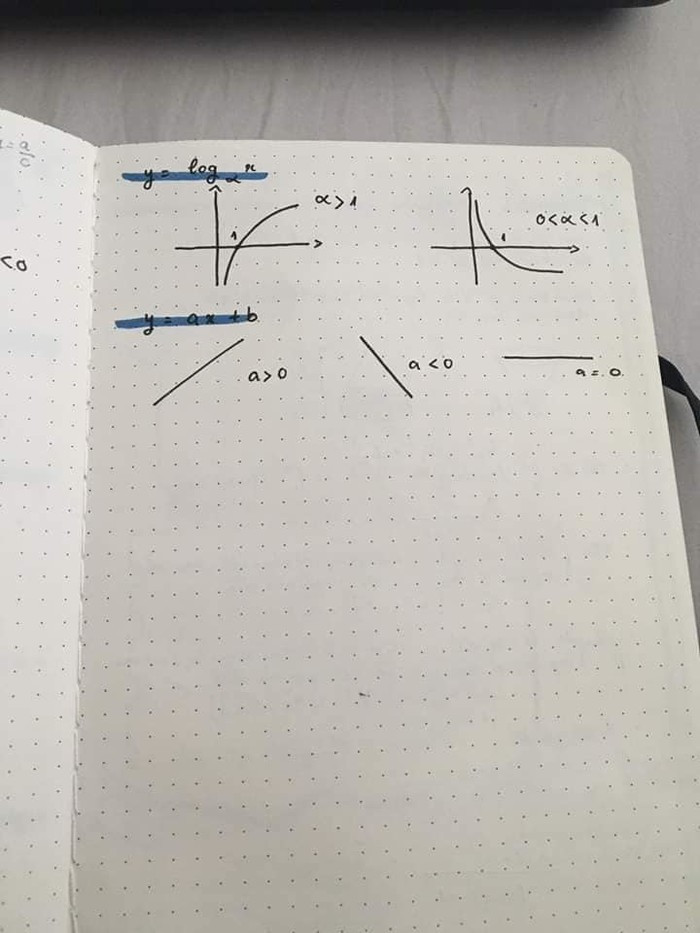 = a/c
<0
y = log_α x
α>1
0<α<1
1
1
y = ax + b
a>0
a<0
a = 0